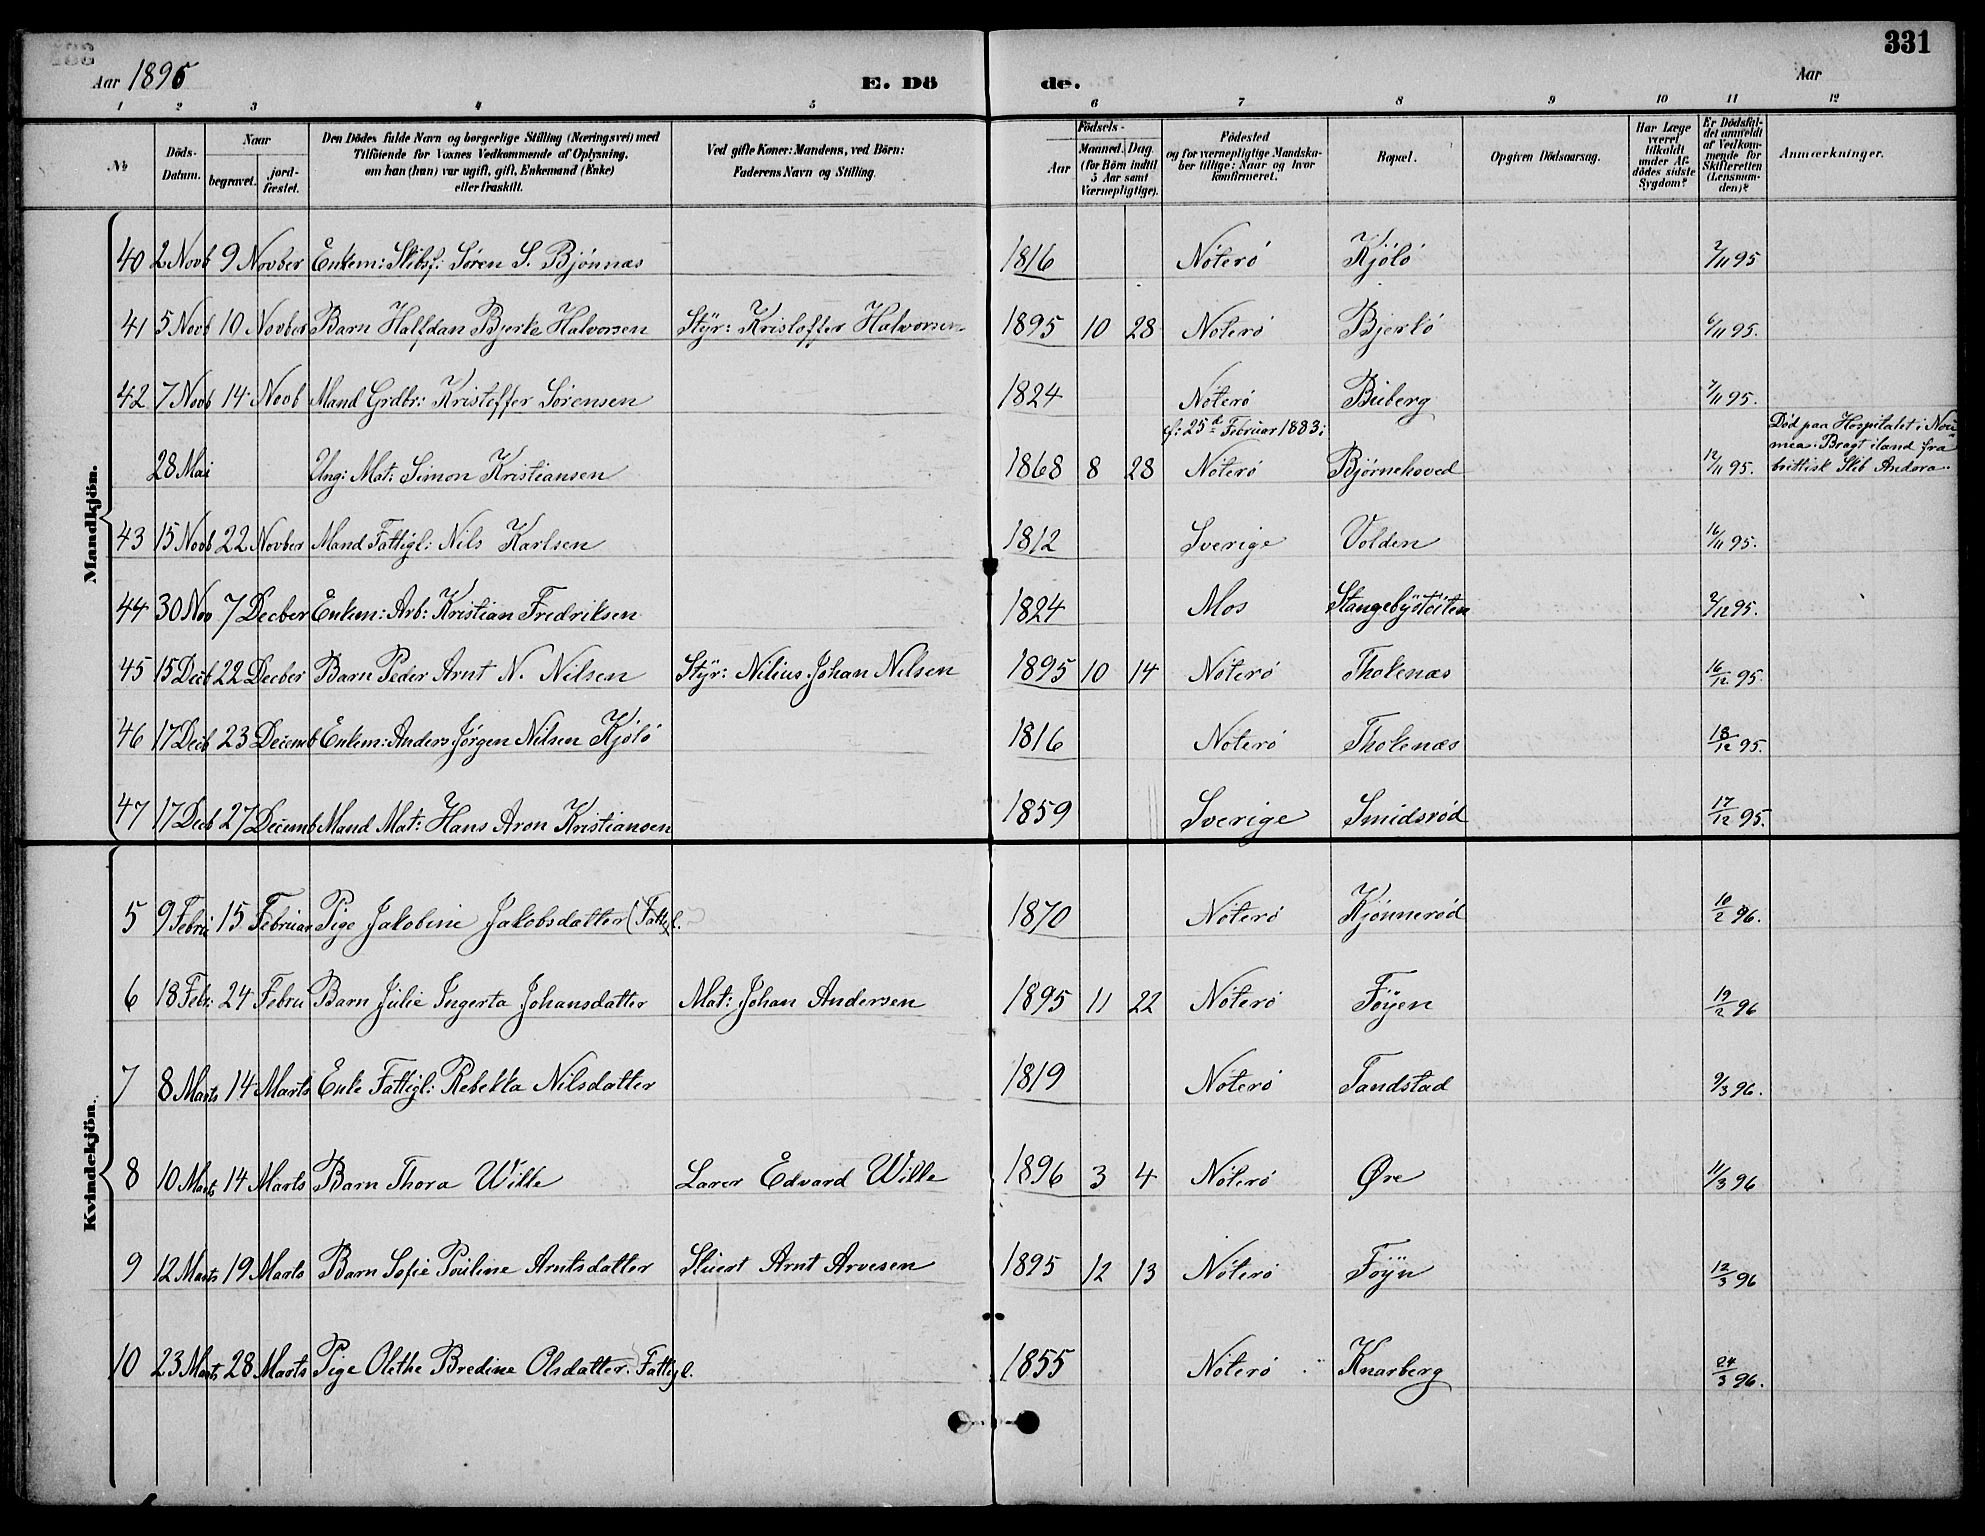 331
Aar 1895 E. Dö de. Aar
1 2 3 4 5 6 7 8 9 10 11 12
№ Döds-Datum. Naar begravet. jord-fæstet. Den Dödes fulde Navn og borgerlige Stilling (Næringsvei) med Tilföiende for Voxnes Vedkommende af Oplysning, om han (hun) var ugift, gift, Enkemand (Enke) eller fraskilt. Ved gifte Koner: Mandens, ved Börn: Faderens Navn og Stilling. Födsels- Aar Maaned. Dag. (for Börn indtil 5 Aar samt Værnepligtige). Födested og for værnepligtige Mandskaber tillige: Naar og hvor konfirmeret. Bopæl. Opgiven Dödsaarsag. Har Læge været tilkaldt under Afdödes sidste Sygdom? Er Dödsfaldet anmeldt af Vedkommende for Skifteretten (Lensmanden)? Anmærkninger.
Mandkjön.
40 2 Novb 9 Novber Enkem: Skibsf: Søren S. Bjønnæs 1816 Nøterø Kjølø 2/11 95
41 5 Novb 10 Novber Barn Halfdan Bjerke Halvorsen Styr: Kristoffer Halvorsen 1895 10 28 Nøterø Bjerkø 6/11 95.
42 7 Novb 14 Novb Mand Grdbr: Kristoffer Sørensen 1824 Nøterø Buberg 7/11 95.
28 Mai Ung: Mat: Simon Kristiansen 1868 8 28 cf: 25d Februar 1883: Nøterø Bjørnehoved 12/11 95. Død paa Hospitalet i Noumea. Bragt iland fra brittisk Skib Andora.
43 15 Novb 22 Novber Mand Fattigl: Nils Karlsen 1812 Sverige Volden 16/11 95.
44 30 Nov 7 Decber Enkem: Arb: Kristian Fredriksen 1824 Mos 2/12 95.
45 15 Decb 22 Decber Barn Peder Arnt N. Nilsen Styr: Nilius Johan Nilsen 1895 10 14 Nøterø Tholenæs 16/12 95.
46 17 Decb 23 Decemb Enkem: Anders Jørgen Nilsen Kjølø 1816 Nøterø Tholenæs 18/12 95.
47 17 Decb 27 Decemb Mand Mat: Hans Aron Kristiansen 1859 Sverige Smidsrød 17/12 95.
Kvindekjön.
5 9 Febru 15 Februar Pige Jakobine Jakobsdatter (Fattigl. 1870 Nøterø Kjønnerød 10/2 96.
6 18 Febr: 24 Febru Barn Julie Ingerta Johansdatter Mat: Johan Andersen 1895 11 22 Nøterø Føyen 19/2 96
7 8 Marts 14 Marts Enke Fattigl: Rebekka Nilsdatter 1819 Nøterø Tandstad 9/3 96.
8 10 Marts 14 Marts Barn Thora Wille Lærer Edvard Wille 1896 3 4 Nøterø Øre 11/3 96
9 12 Marts 19 Marts Barn Sofie Pouline Arntsdatter Stuert Arnt Arvesen 1895 12 13 Nøterø Føyn 12/3 96
10 23 Marts 28 Marts Pige Olethe Bredine Olsdatter. Fattigl. 1855 Nøterø Knarberg 24/3 96.